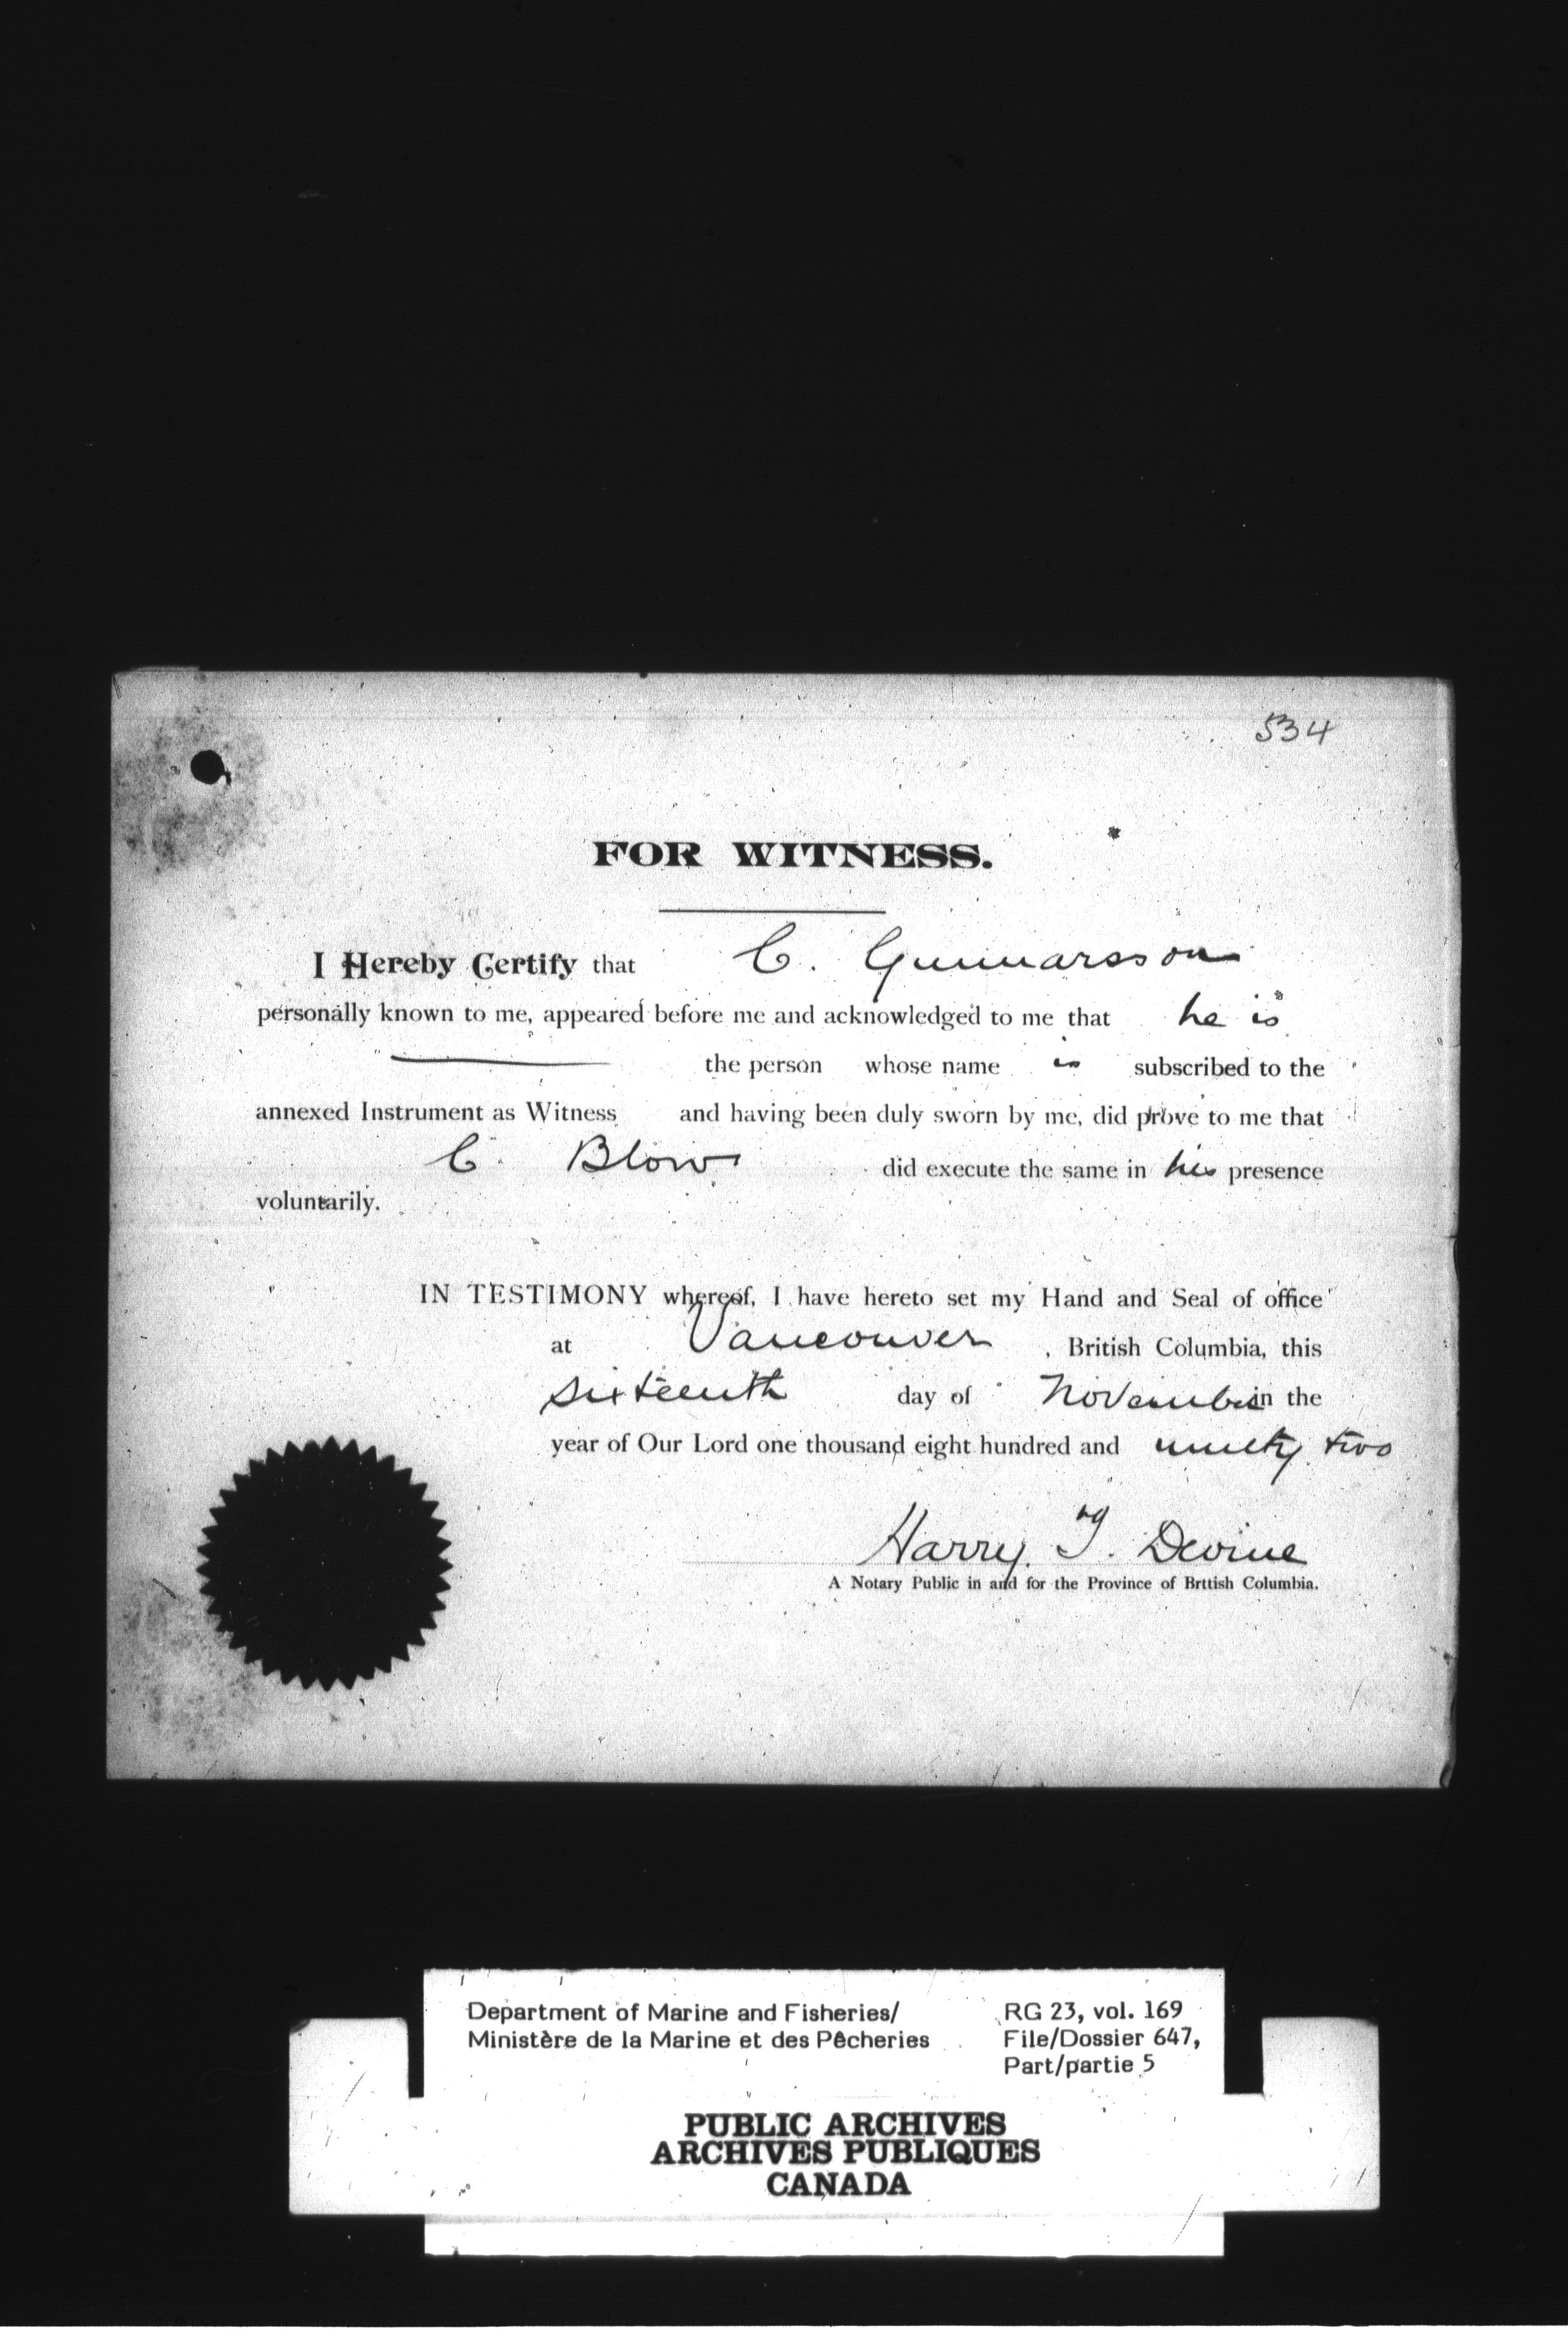 534
FOR WITNESS.
I Hereby Certify that C. Gunnarsson
personally known to me, appeared before me and acknowledged to me that he is
the person whose name is subscribed to the
annexed Instrument as Witness and having been duly sworn by me, did prove to me that
C. Blow did execute the same in his presence
voluntarily.
IN TESTIMONY whereof, I have hereto set my Hand and Seal of office
at Vancouver, British Columbia, this
sixteenth day of November in the
year of Our Lord one thousand eight hundred and ninety two
Harry T. Devine
A Notary Public in and for the Province of Brttish Columbia.
Department of Marine and Fisheries/ RG 23, vol. 169
Ministère de la Marine et des Pêcheries File/Dossier 647,
Part/partie 5
PUBLIC ARCHIVES
ARCHIVES PUBLIQUES
CANADA